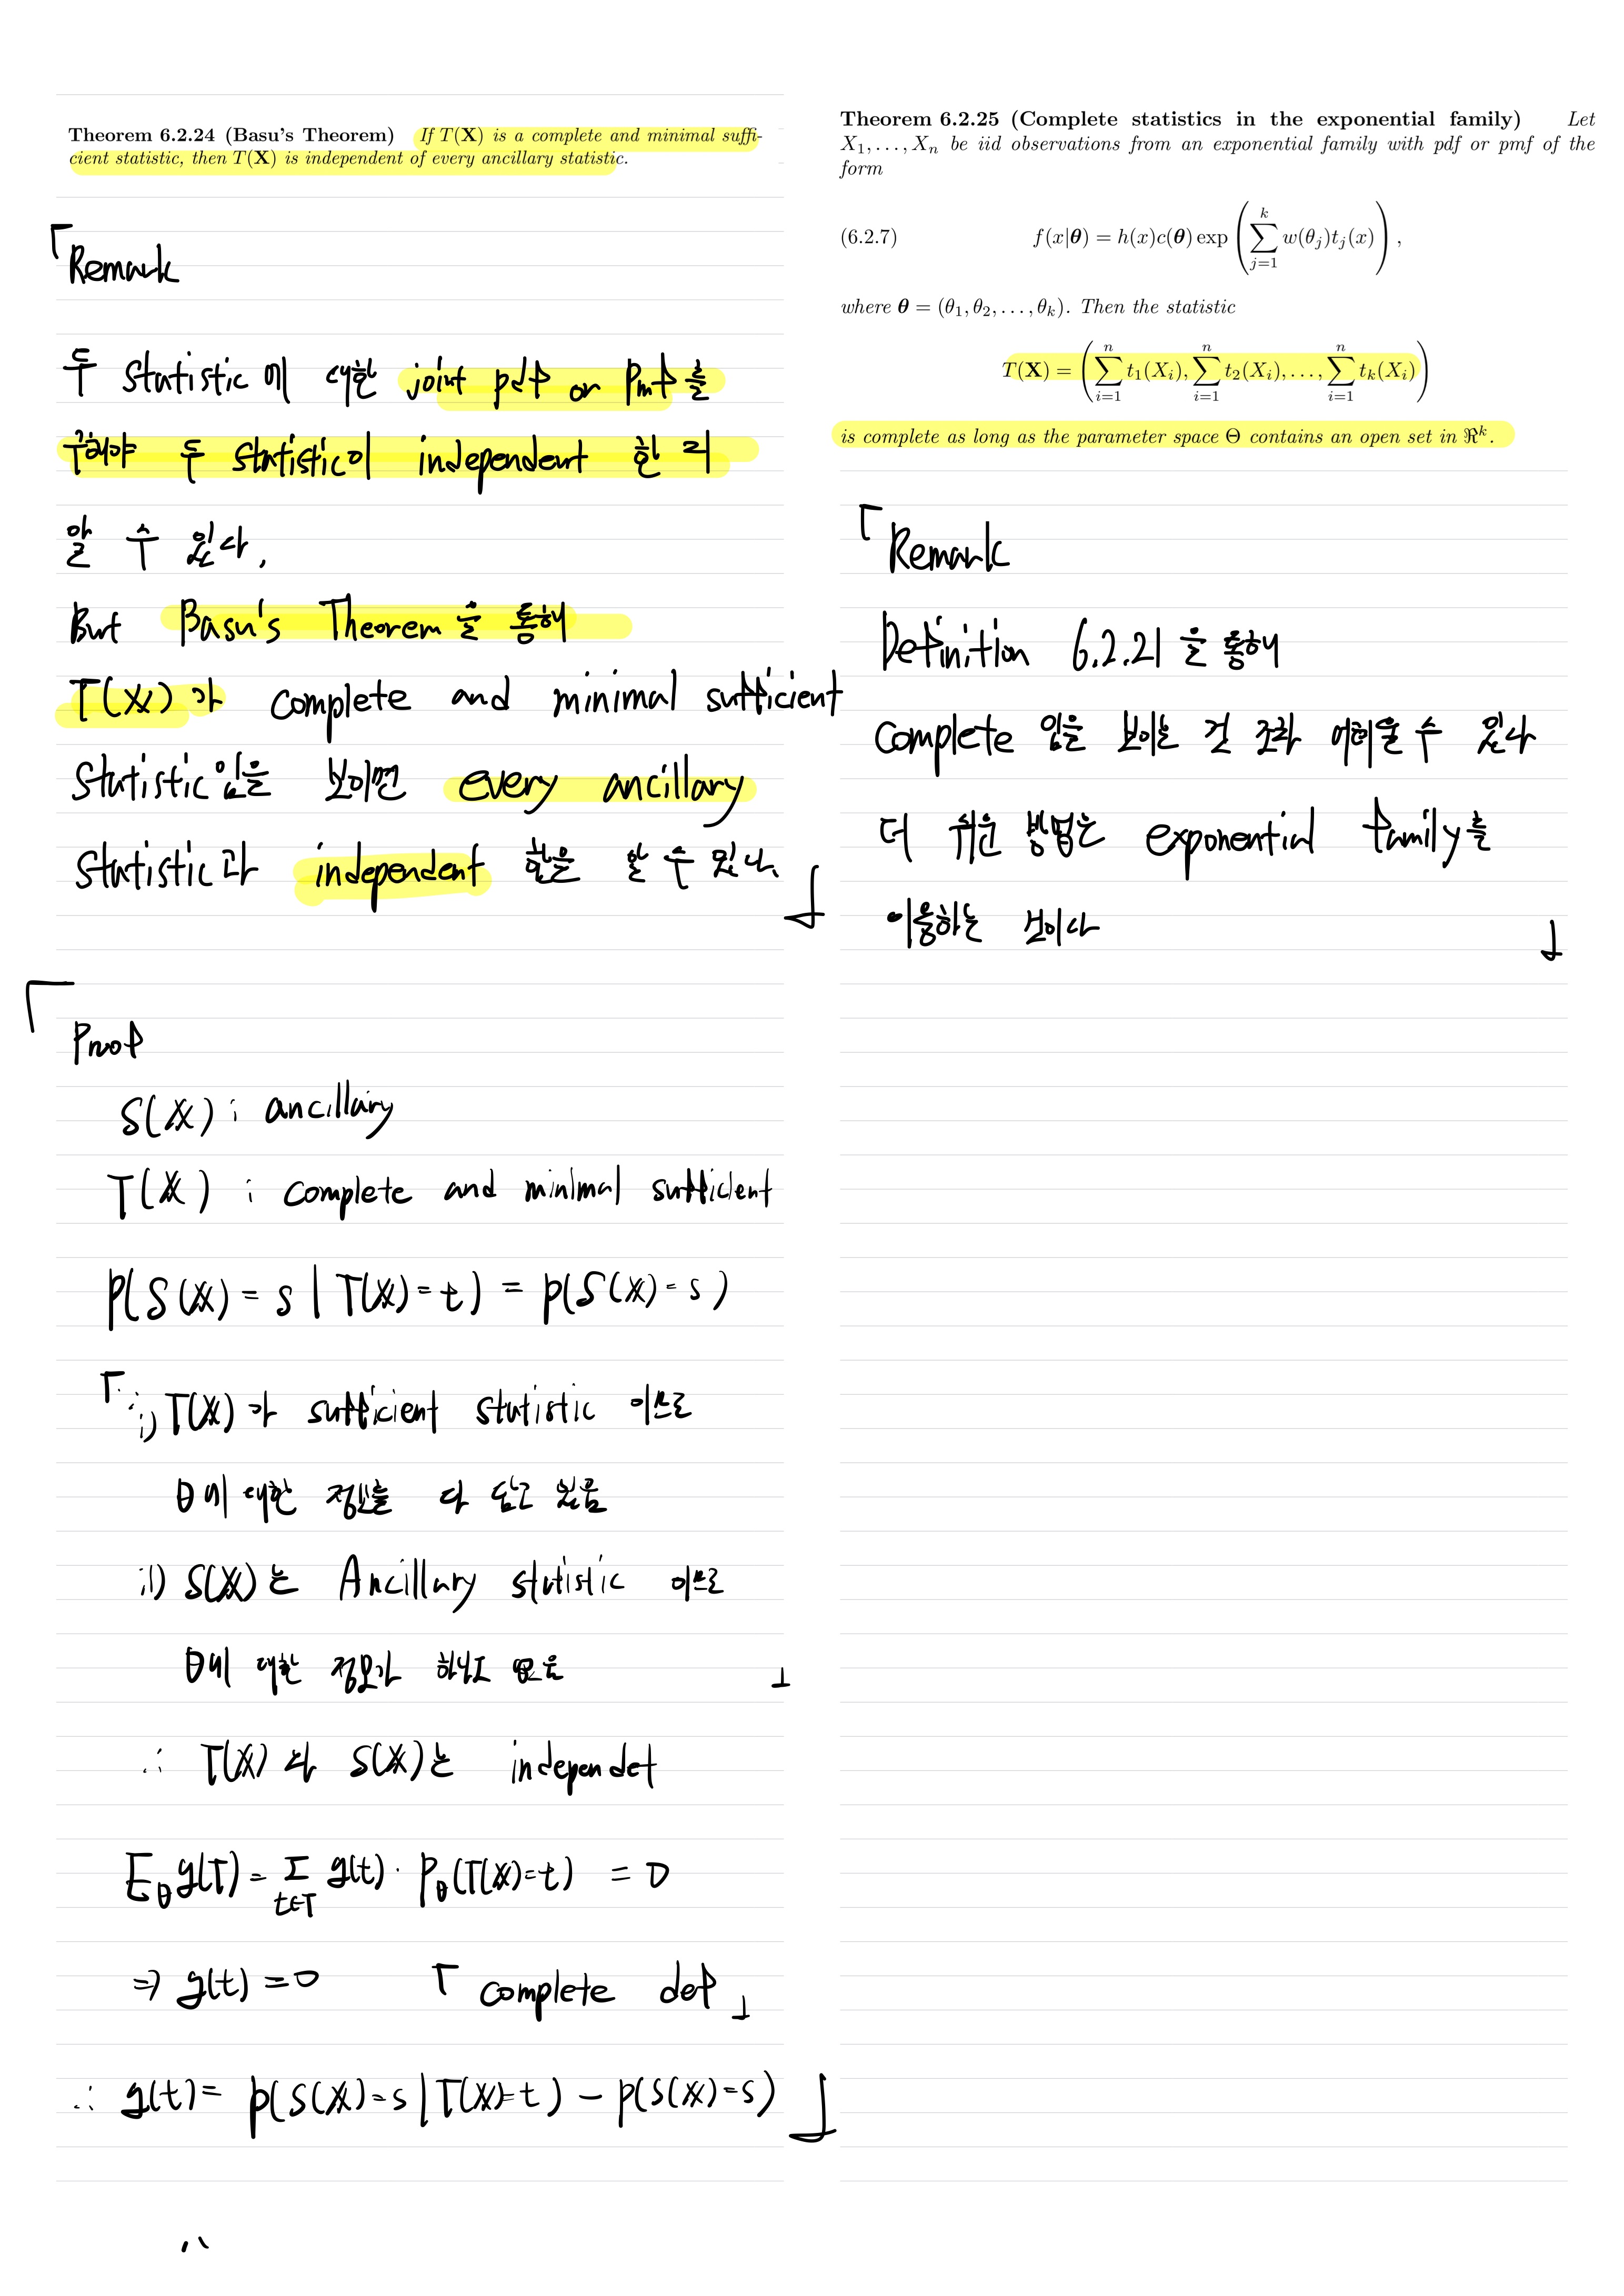 Theorem 6.2.24 (Basu's Theorem) If T(X) is a complete and minimal suffi-
cient statistic, then T(X) is independent of every ancillary statistic.
Remark
두 statistic에 대한 joint pdf or pmf를
구해야 두 statistic이 independent 한 지
알 수 있다.
But Basu's Theorem을 통해
T(X)가 complete and minimal sufficient
statistic임을 보이면 every ancillary
statistic과 independent 함을 알 수 있다.
Proof
S(X) : ancillary
T(X) : complete and minimal sufficient
P(S(X) = s | T(X) = t) = P(S(X) = s)
∵ i) T(X)가 sufficient statistic 이므로
θ에 대한 정보를 다 담고 있음
ii) S(X)는 Ancillary statistic 이므로
θ에 대한 정보가 하나도 없음
∴ T(X)와 S(X)는 independet
E_θ g(T) = Σ_{t∈T} g(t) · P_θ(T(X) = t) = 0
⇒ g(t) = 0 「 complete def 」
∴ g(t) = P(S(X) = s | T(X) = t) - P(S(X) = s)
Theorem 6.2.25 (Complete statistics in the exponential family) Let
X₁, . . . , Xₙ be iid observations from an exponential family with pdf or pmf of the
form
(6.2.7) f(x|θ) = h(x)c(θ) exp ( Σ_{j=1}^{k} w(θ_j)t_j(x) ) ,
where θ = (θ₁, θ₂, . . . , θ_k). Then the statistic
T(X) = ( Σ_{i=1}^{n} t₁(X_i), Σ_{i=1}^{n} t₂(X_i), . . . , Σ_{i=1}^{n} t_k(X_i) )
is complete as long as the parameter space Θ contains an open set in ℜ^k.
Remark
Definition 6.2.21을 통해
Complete 임을 보이는 건 조금 어려울 수 있다
더 쉬운 방법은 exponential family를
이용하는 것이다